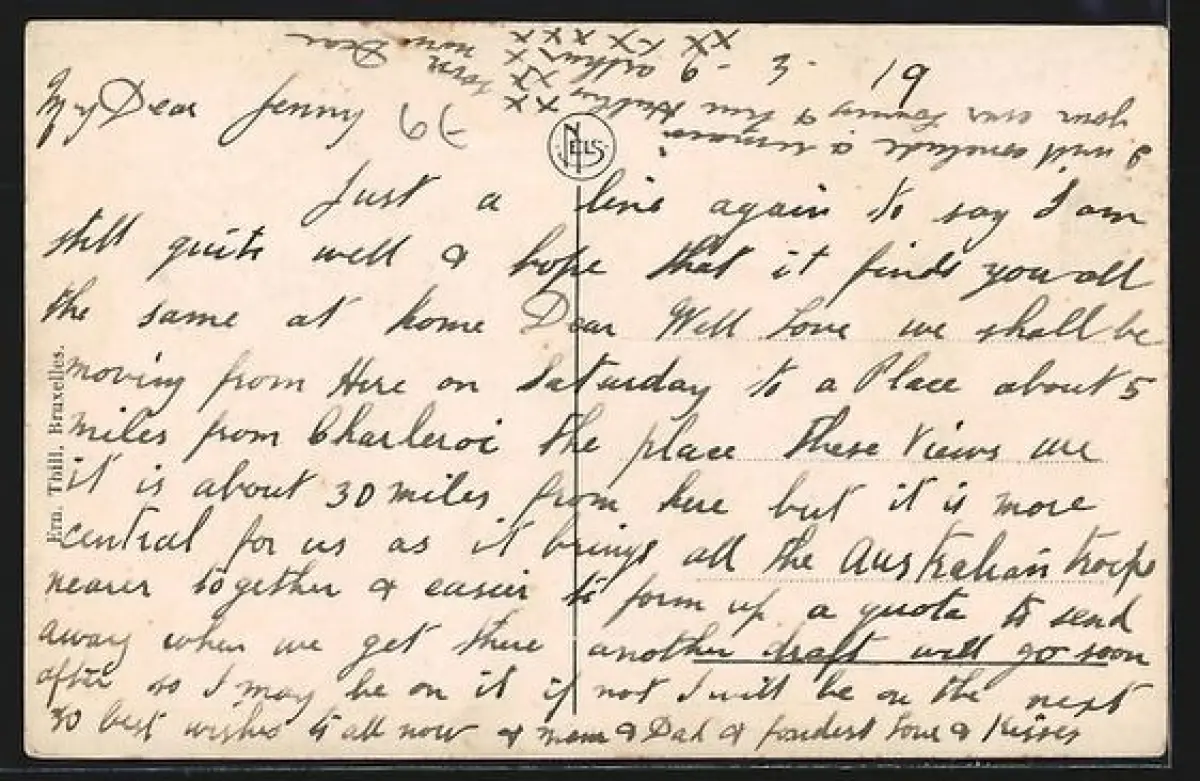 6 - 3 - 19
My Dear Jenny (6)
NELS
Just a line again to say I am
still quite well & hope that it finds you all
the same at home Dear Well Love we shall be
moving from Here on Saturday to a Place about 5
miles from Charleroi the place these Views are
it is about 30 miles from here but it is more
central for us as it brings all the Australian troops
nearer together & easier to form up a quota to send
away when we get there another draft will go soon
after so I may be on it if not I will be on the next
so best wishes to all now & mum & Dad & fondest love & Kisses
I must conclude & remain
your ever loving & true
Arthur
xx xx xxx
Ern. Thill, Bruxelles.